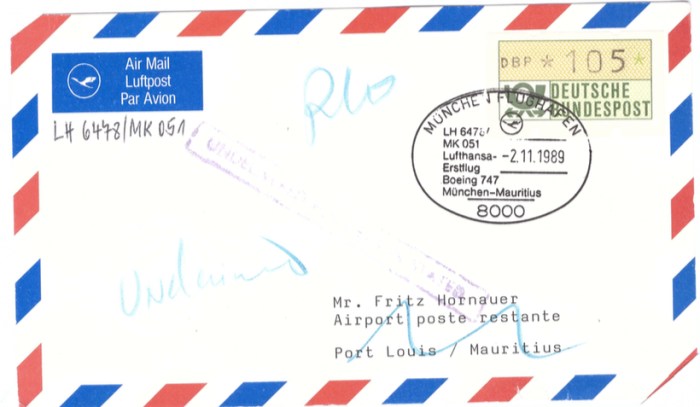 Air Mail
Luftpost
Par Avion
LH 6478/MK 051
DBP * 105 *
DEUTSCHE
BUNDESPOST
MÜNCHEN FLUGHAFEN
LH 6478/
MK 051
Lufthansa-
Erstflug
Boeing 747
München-Mauritius
-2.11.1989
8000
Mr. Fritz Hornauer
Airport poste restante
Port Louis / Mauritius